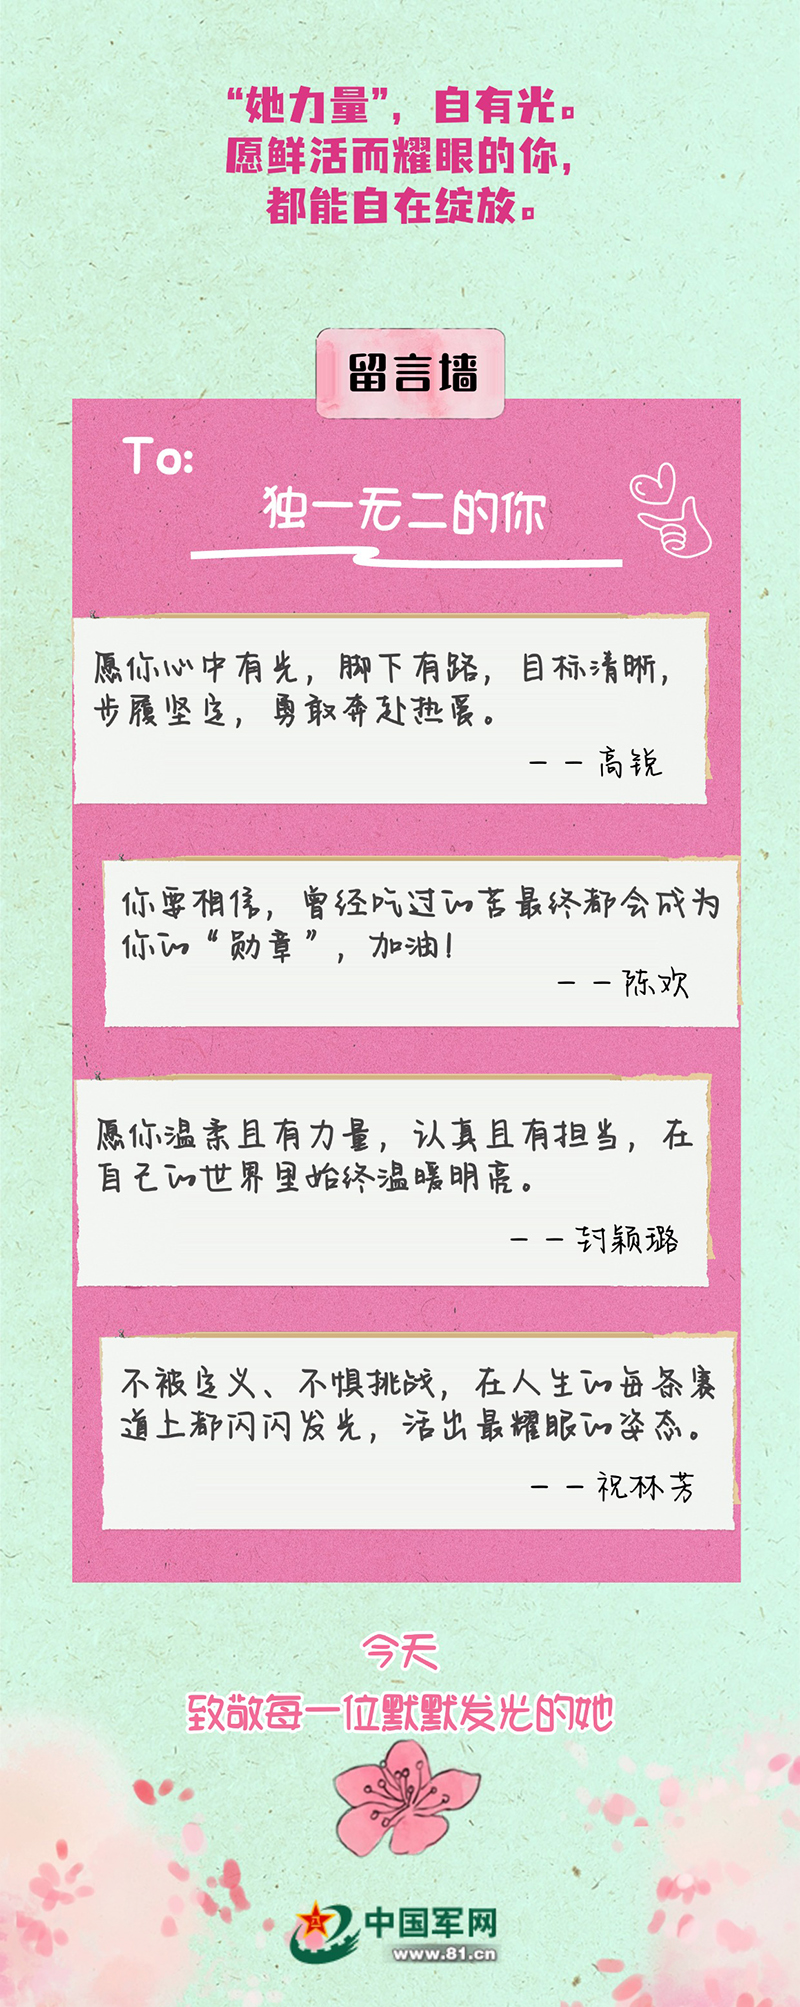 “她力量”，自有光。
愿鲜活而耀眼的你，
都能自在绽放。
留言墙
To:
独一无二的你
愿你心中有光，脚下有路，目标清晰，
步履坚定，勇敢奔赴热爱。
——高锐
你要相信，曾经吃过的苦最终都会成为
你的“勋章”，加油！
——陈欢
愿你温柔且有力量，认真且有担当，在
自己的世界里始终温暖明亮。
——封颖璐
不被定义、不惧挑战，在人生的每条赛
道上都闪闪发光，活出最耀眼的姿态。
——祝林芳
今天
致敬每一位默默发光的她
八一
中国军网
www.81.cn